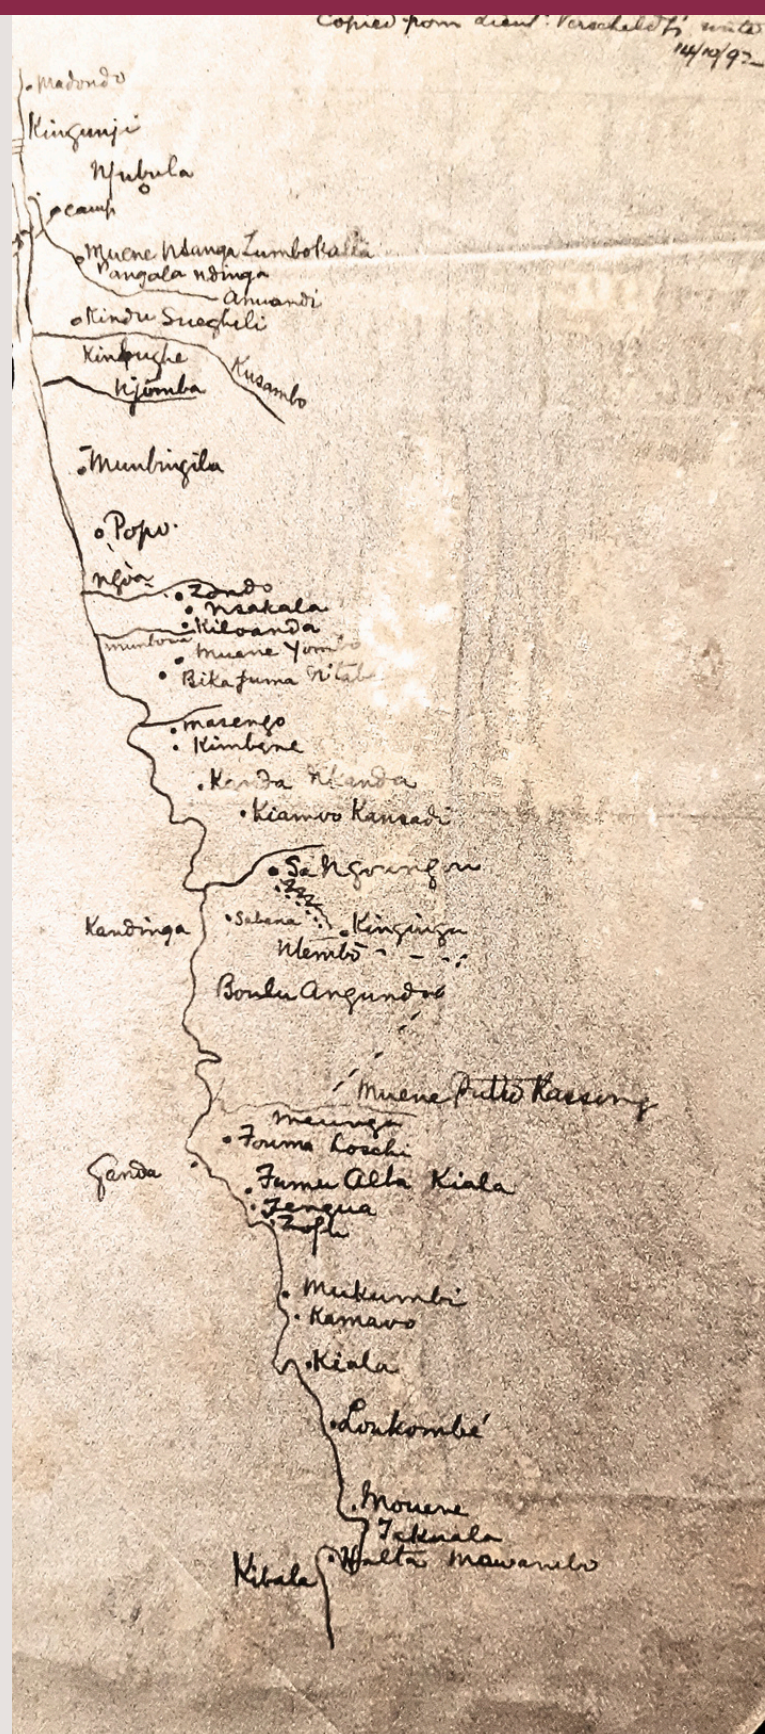 Copied from Lieut: Verscheldt's
14/10/9
Madondo
Kingunji
Njubula
camp
Muene Ntsanga Lumbokalla
Pangala ndinga
Anuandi
Kindu Sueghili
Kinbughe
Kusambo
Njomba
Munbingila
Popo.
Ngoa
Zondo
Nsakala
Kiloanda
Muene Yombo
Bikafuma
Masengo
Kimbene
Kanda Nkanda
Kiamvo Kansadi
Sa Ngoungou
Kandinga
Sabena
Kinginga
Ntembo
Boulu Angundoo
Muene Putu Kassong
Meunga
Fouma Loschi
Ganda
Fumu Alta Kiala
Tengua
Mukumbi
Kamavo
Kiala
Loukombé
Mouene
Takuala
Walta Mowanebo
Kibala